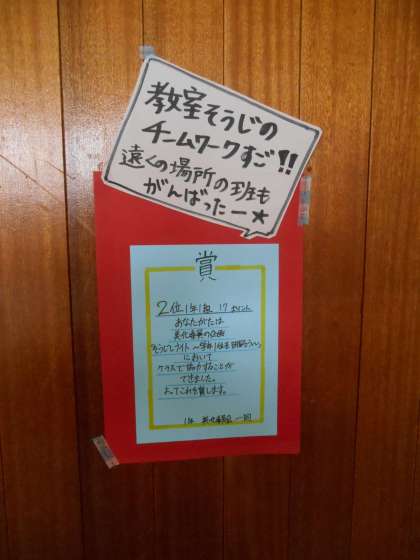 教室そうじの
チームワークすご!!
遠くの場所の班も
がんばったー★
賞
2位 1年1組 17ポイント
あなたがたは
美化委員の企画
そうじしナイト 〜学年1位を
において
クラスで協力することが
できました。
よってこれを賞します。
1年 美化委員会 一同